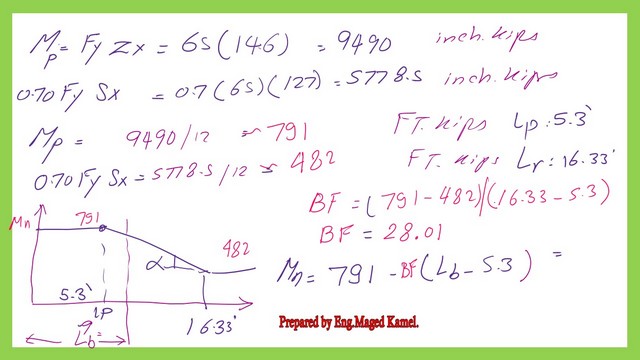 Mp = Fy Zx = 65(146) = 9490 inch.kips
0.70 Fy Sx = 0.7(65)(127) = 5778.5 inch.kips
Mp = 9490/12 ≈ 791 FT. kips Lp: 5.3'
0.70 Fy Sx = 5778.5/12 ≈ 482 FT. kips Lr: 16.33'
BF = (791-482)/(16.33-5.3)
BF = 28.01
Mn 791 482
α
Mn = 791 - BF(Lb - 5.3) =
5.3'
Lp 16.33'
9'
Lb=
Prepared by Eng.Maged Kamel.